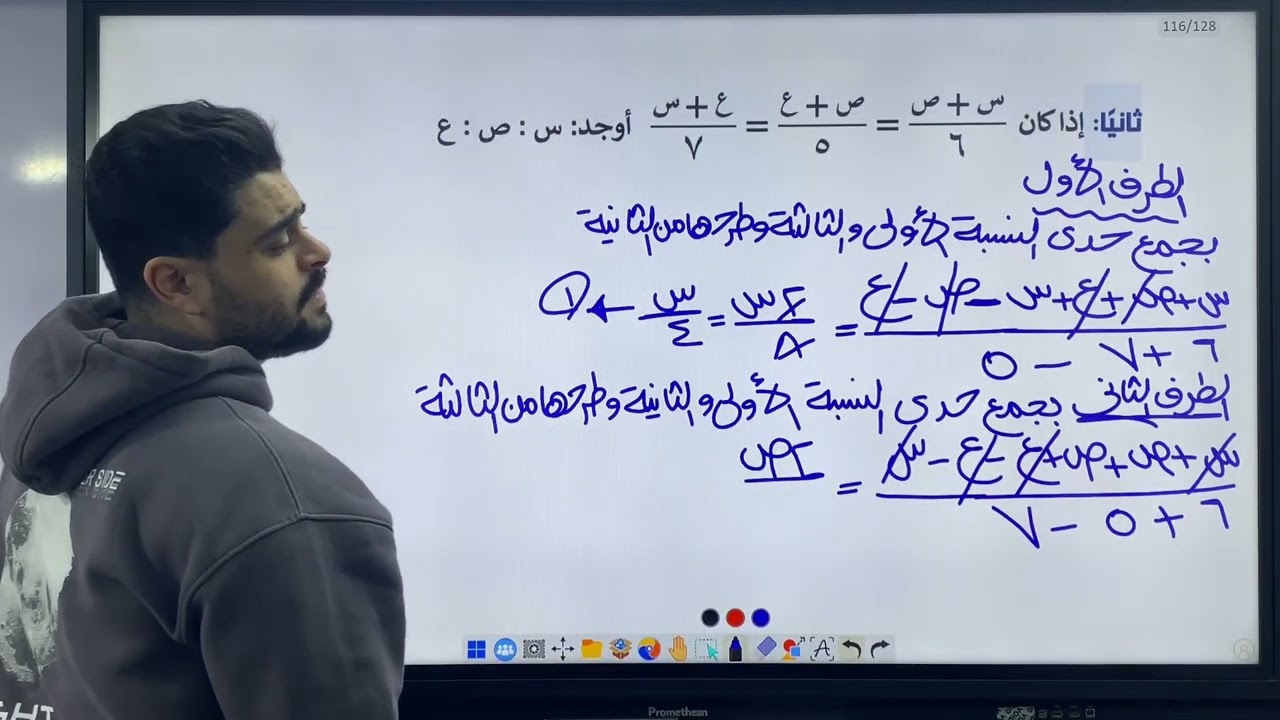 116/128
ثانيًا: إذا كان (س + ص)/٦ = (ص + ع)/٥ = (ع + س)/٧ أوجد: س : ص : ع
الطرف الأول
بجمع حدى النسبة الأولى والثالثة وطرحها من الثانية
(س + ص + ع + س - ص - ع)/(٦ + ٧ - ٥) = ٢س/٨ = س/٤ ← ١
الطرف الثانى بجمع حدى النسبة الأولى والثانية وطرحها من الثالثة
(س + ص + ص + ع - ع - س)/(٦ + ٥ - ٧) = ٢ص
ER SIDE
GHT
Promethean